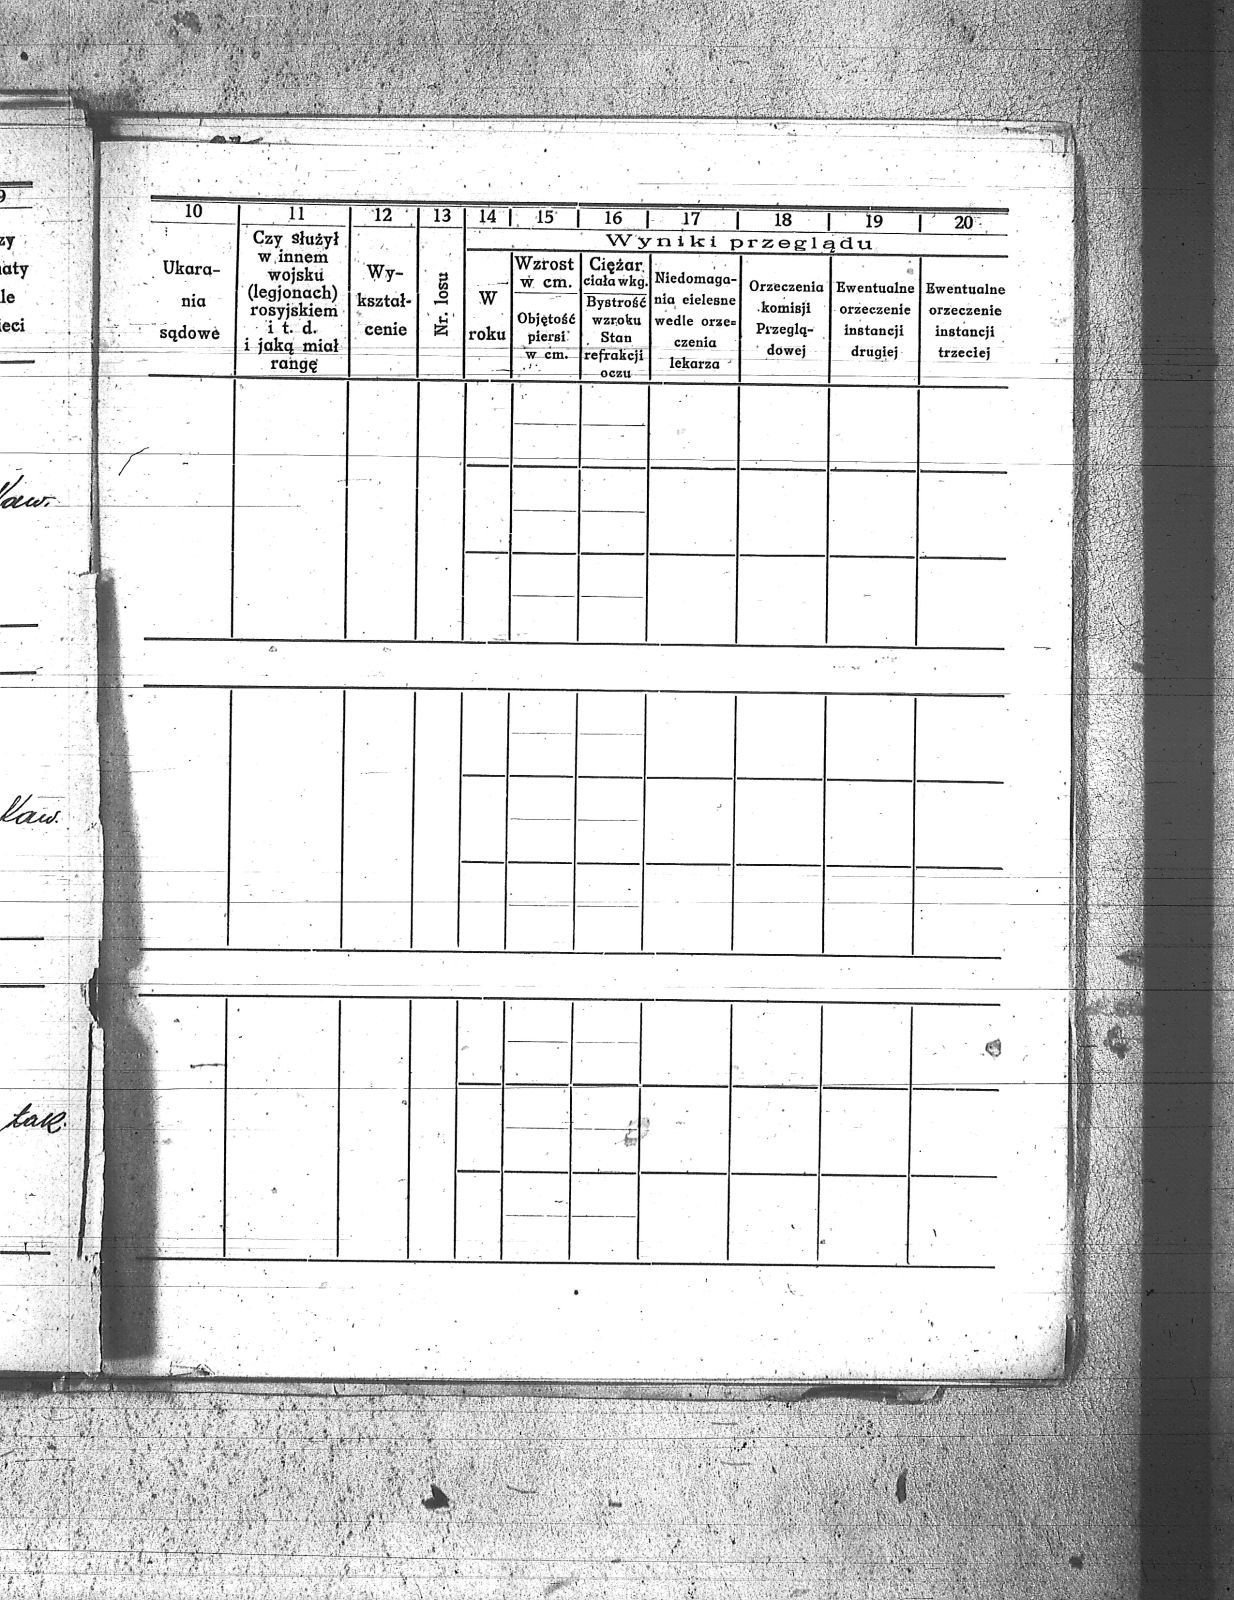 9
zy
naty
le
ieci
Kaw.
Kaw.
tak.
10
11
12
13
14
15
16
17
18
19
20
Wyniki przeglądu
Ukara-
nia
sądowe
Czy służył
w innem
wojsku
(legjonach)
rosyjskiem
i t. d.
i jaką miał
rangę
Wy-
kształ-
cenie
Nr. losu
W
roku
Wzrost
w cm.
Objętość
piersi
w cm.
Ciężar
ciała w kg.
Bystrość
wzroku
Stan
refrakcji
oczu
Niedomaga-
nia cielesne
wedle orze-
czenia
lekarza
Orzeczenia
komisji
Przeglą-
dowej
Ewentualne
orzeczenie
instancji
drugiej
Ewentualne
orzeczenie
instancji
trzeciej